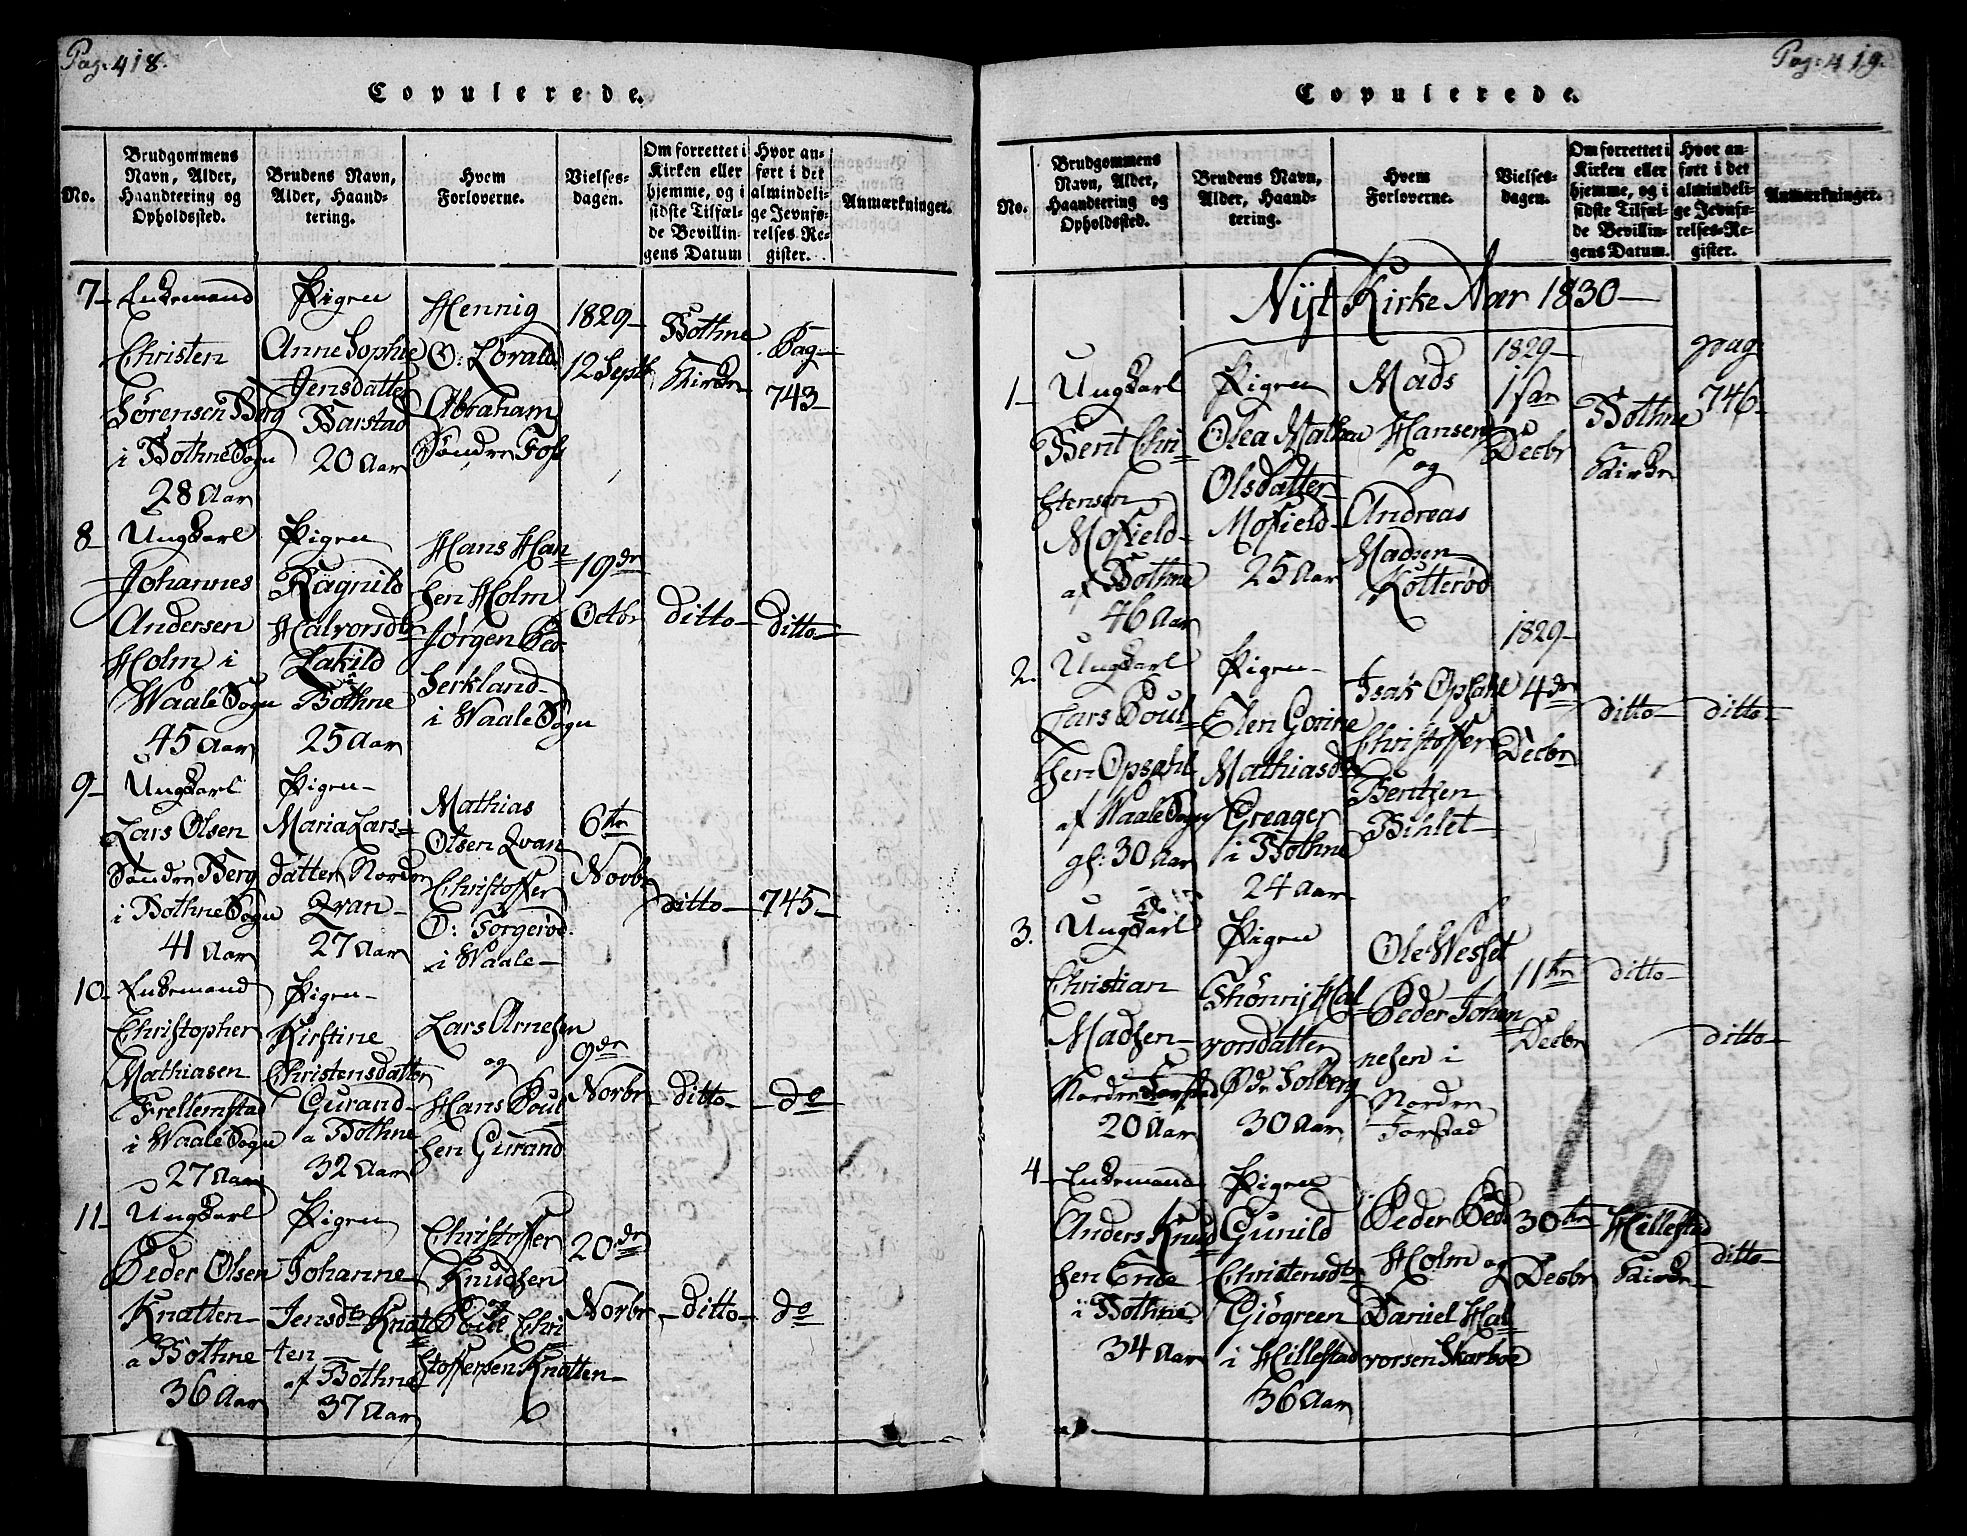 Pag: 418.
Copulerede.
No.
Brudgommens
Navn, Alder,
Haandtering og
Opholdssted.
Brudens Navn,
Alder, Haand-
tering.
Hvem
Forloverne.
Vielses-
dagen.
Om forrettet i
Kirken eller
hjemme, og i
sidste Tilfæl-
de Bevillin-
gens Datum
Hvor an-
ført i det
almindeli-
ge Jevnfø-
relses-Re-
gister.
Anmærkninger.
7-
Enkemand
Christen
Sørensen Berg
i Bothne Sogn
28 Aar
Pigen
Anne Sophie
Jensdatter
Barstad
20 Aar
Hennig
O:
Abraham
Søndre
1829-
12 Septb
Bothne
Kirke
Pag-
743-
8-
Ungkarl
Johannes
Andersen
Holm i
Waale Sogn
45 Aar
Pigen
Ragnild
Halvorsdtr
Lakild
a
Bothne
25 Aar
Hans Han-
sen Holm
Jørgen Ped-
serkland-
i Waale Sogn
19de
Octbr
ditto-
ditto-
9-
Ungkarl
Lars Olsen
Søndre Berg
i Bothne Sogn
41 Aar
Pigen-
Maria Lars-
datter Nordre
Qvan-
27 Aar
Mathias
Olsen Qvan
Christoffer
O: Torgerød
i Waale-
6te
Novbr
ditto-
745-
10-
Enkemand
Christopher
Mathiasen
Frellemstad
i Waale Sogn
27 Aar
Pigen-
Kirstine
Christensdatter
Gurand-
a Bothne
32 Aar
Lars Arnesen
og
Hans Poul-
sen Gurand
9de
Novbr
ditto-
do
11-
Ungkarl
Peder Olsen
Knatten-
a Bothne
36 Aar
Pigen
Johanne
Jensdtr Knat-
ten
af Bothne
37 Aar
Christoffer
Knudsen
og
Chri-
stoffersen Knatten-
20de
Novbr
ditto-
do
Pag: 419.
Copulerede.
No.
Brudgommens
Navn, Alder,
Haandtering og
Opholdssted.
Brudens Navn,
Alder, Haand-
tering.
Hvem
Forloverne.
Vielses-
dagen.
Om forrettet i
Kirken eller
hjemme, og i
sidste Tilfæl-
de Bevillin-
gens Datum.
Hvor an-
ført i det
almindeli-
ge Jevnfø-
relses-Re-
gister.
Anmærkninger.
Nyt Kirke Aar 1830-
1-
Ungkarl
Bent Chri-
stensen
Mofield-
af Bothne
46 Aar
Pigen
Olea Mathea
Olsdatter
Mofield-
25 Aar
Mads
Hansen
og
Andreas
Madsen
Kotterød
1829-
Decbr
Bothne
Kirke
pag
746-
2.
Ungkarl
Lars Poul-
sen Opsahl
af Waale Sogn
gl: 30 Aar
Pigen-
Elen Gorine
Mathiasd
Greager
i Bothne
24 Aar
Isak Opsahl
Christoffer
Bentzen
Bihlet-
1829-
4de
Decbr
ditto-
ditto-
3.
Ungkarl
Christian
Madsen-
Nordre
20 Aar
Pigen
Hal-
vorsdatter
Solberg
30 Aar
Ole
Peder Johan-
nesen i
Nordre
Forstad
11te
Decbr
ditto-
ditto-
4-
Enkemand
Anders Knud-
sen Ende
i Bothne
34 Aar
Pigen
Gunild
Christensdtr
Giøgreen
i Hillestad
36 Aar
Peder Ped-
Holm og
Daniel Hal-
vorsen Skarboe
30te
Decbr
Hillestad
Kirke
ditto-